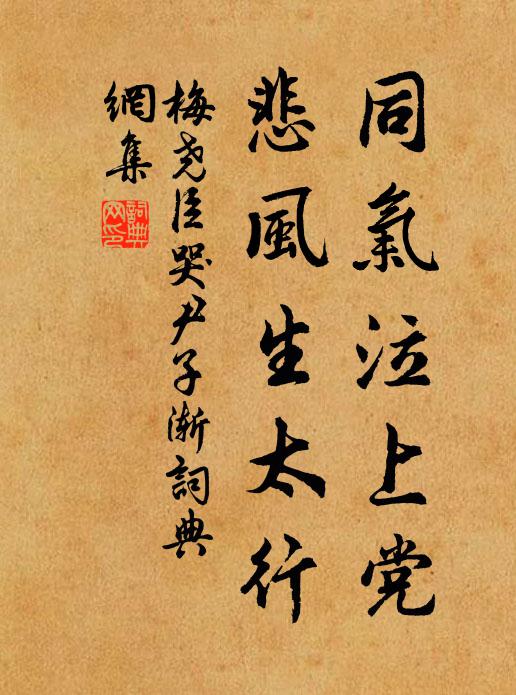 同氣泣上党
悲風生太行
梅尧臣哭尹子漸詞典
網集
詞典
网印